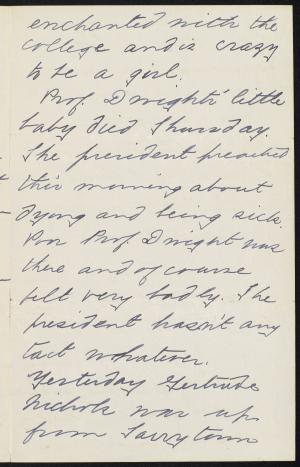 enchanted with the
college and is crazy
to be a girl.
Prof. Dwights' little
baby died Thursday.
The president preached
this morning about
dying and being sick.
Poor Prof. Dwight was
there and of course
felt very badly. The
president hasn't any
tact whatever.
Yesterday Gertrude
Nichols was up
from Tarrytown